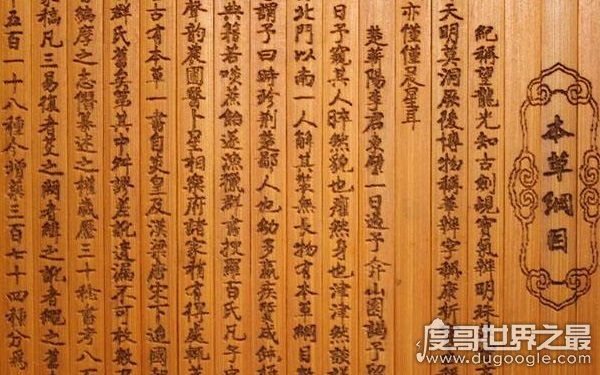 本草綱目
紀稱望龍光知古劍覘寶氣辨明珠
天明莫洞厥後博物稱華辨字稱康析
亦僅僅晨星耳
楚蘄陽李君東璧一日過予弇山園謁予留
日予窺其人睟然貌也癯然身也津津然談議
北門以南一人解其裝無長物有本草綱目
謂予曰時珍荊楚鄙人也幼多羸疾質成鈍椎
典籍若啖蔗飴遂漁獵群書搜羅百氏凡子史
聲韻農圃醫卜星相樂府諸家稍有得處輒著
古有本草一書自炎皇及漢梁唐宋下迨國朝
群氏舊矣第其中舛謬差訛遺漏不可枚數
編摩之志僭纂述之權歲歷三十稔書考八百
家稿凡三易復者芟之闕者緝之訛者繩之舊
五百一十八種今增藥三百七十四種分為
度哥世界之最
www.dugoogle.com